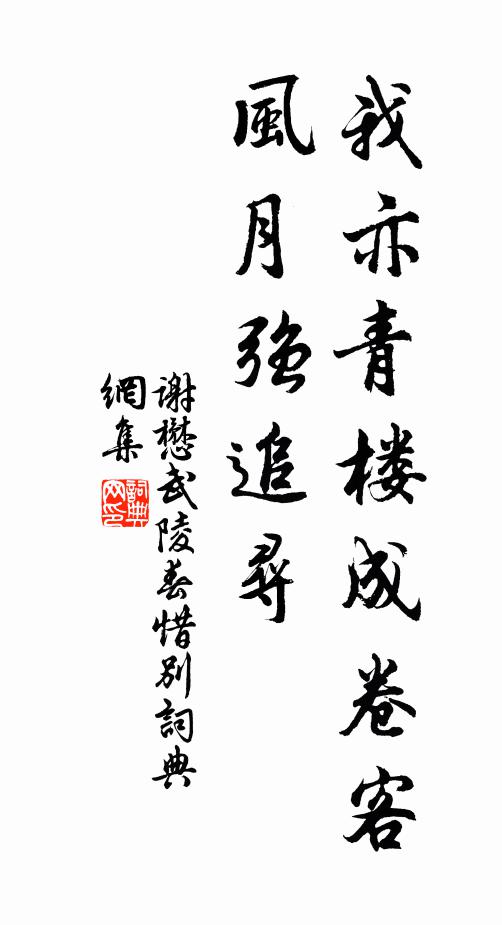 我亦青楼成卷客
風月強追尋
谢懋武陵春惜别詞典
網集
詞典
网印